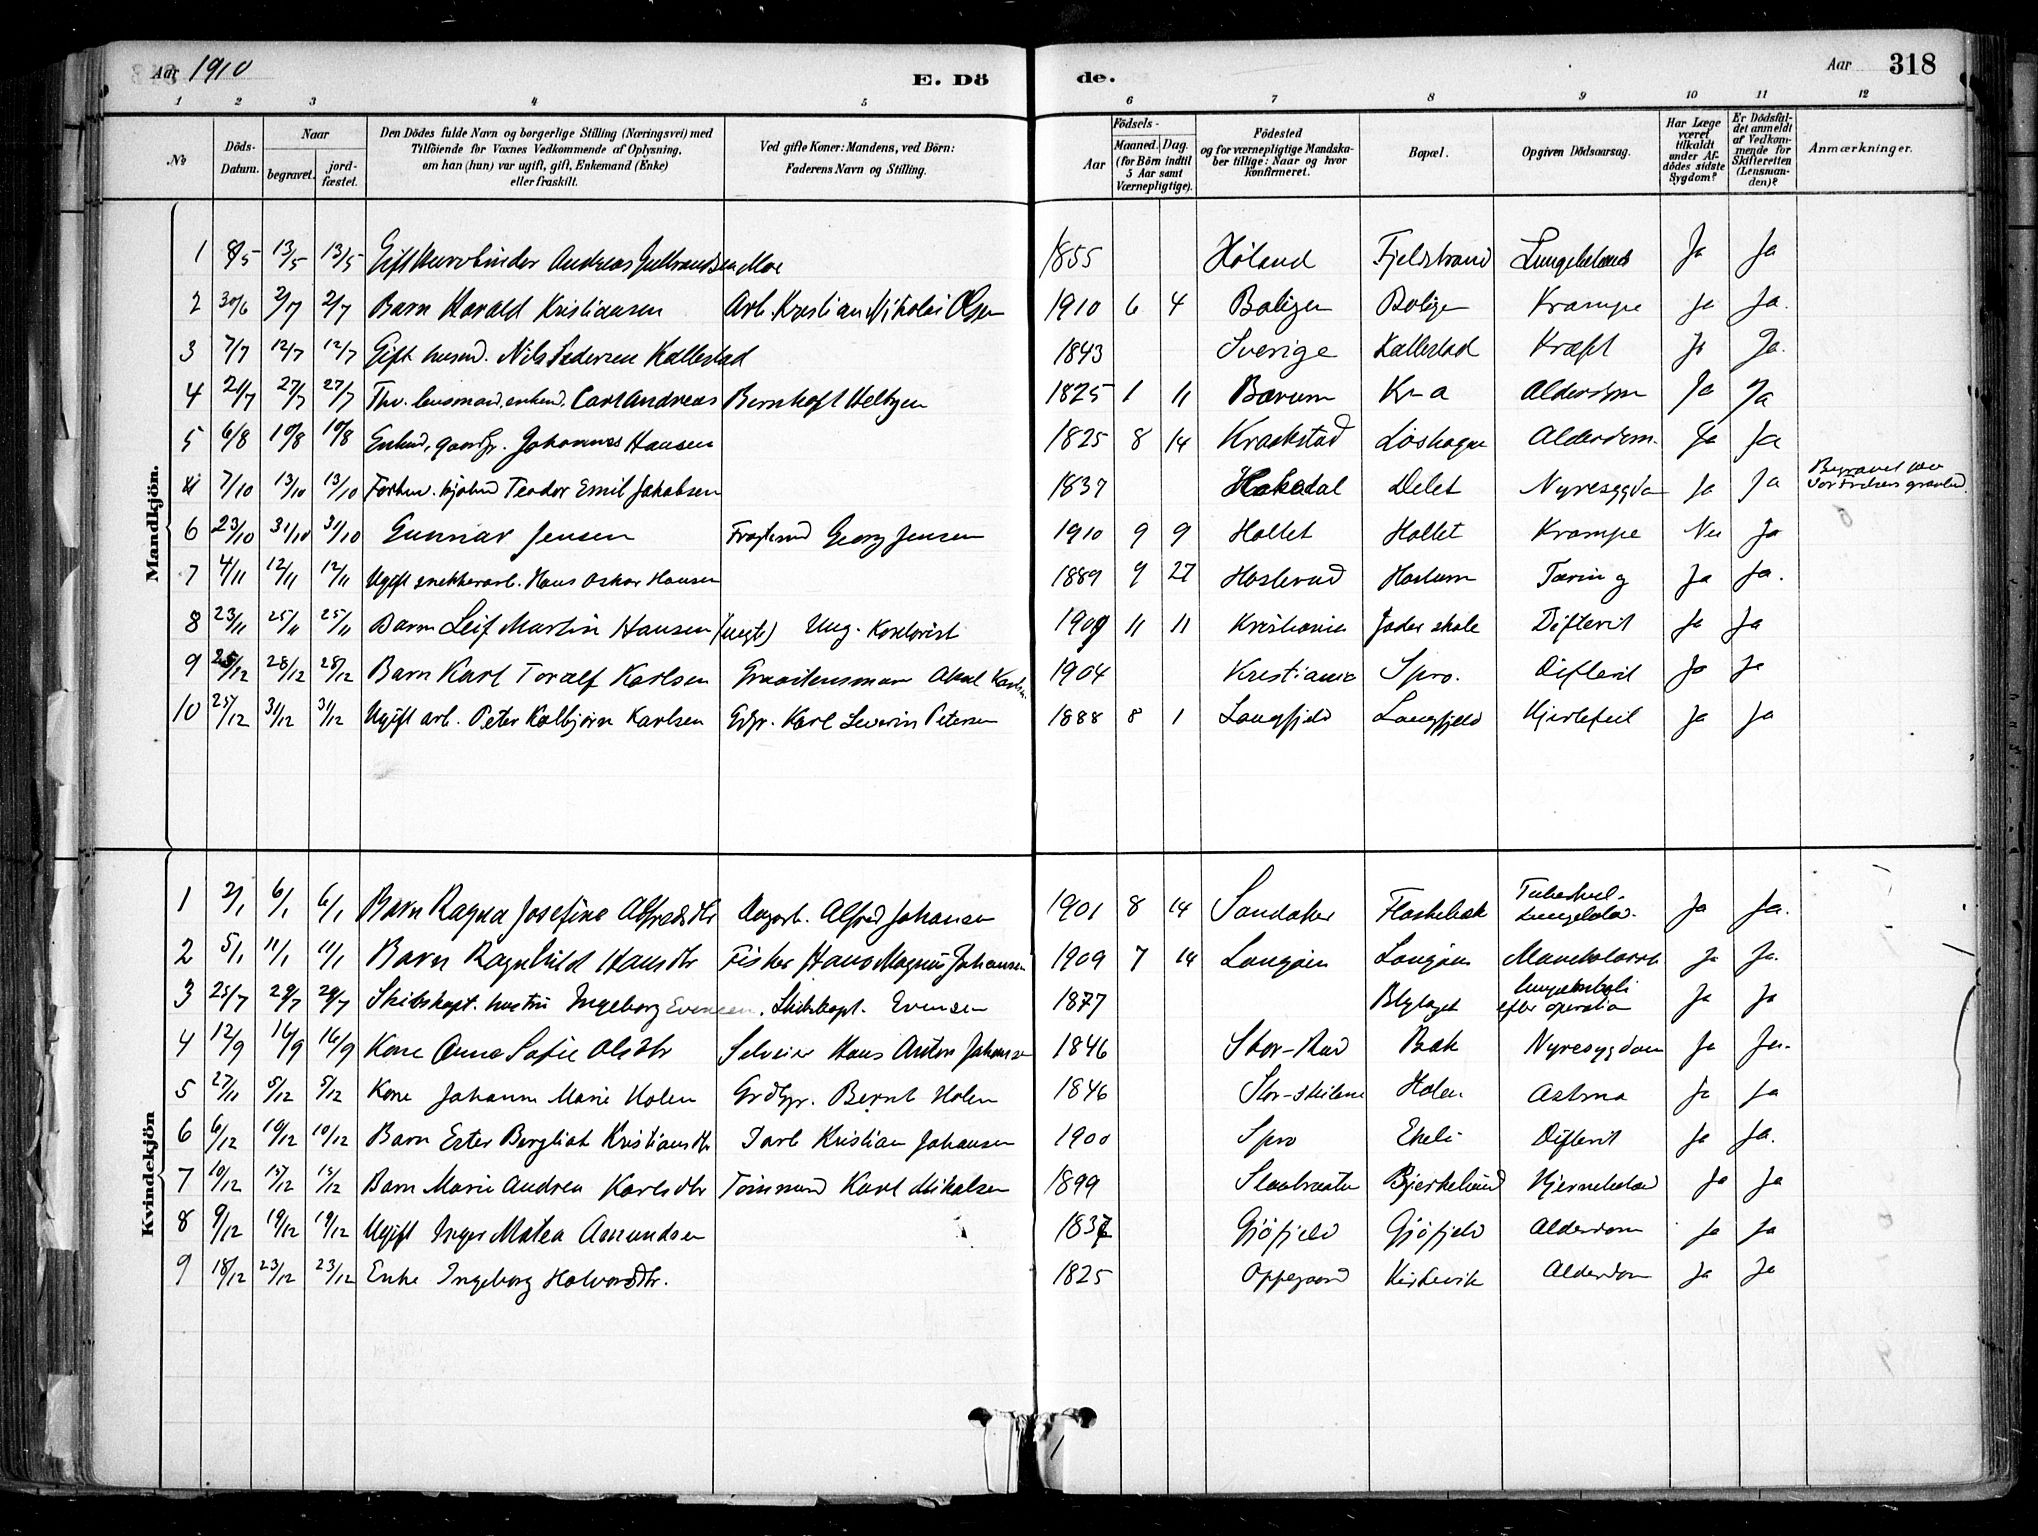 Aar 1910 E. Dö de. Aar 318
1 2 3 4 5 6 7 8 9 10 11 12
No Döds-Datum. Naar begravet. jord-fæstet. Den Dödes fulde Navn og borgerlige Stilling (Næringsvei) med Tilföiende for Voxnes Vedkommende af Oplysning, om han (hun) var ugift, gift, Enkemand (Enke) eller fraskilt. Ved gifte Koner: Mandens, ved Börn: Faderens Navn og Stilling. Aar Födsels- Maaned. Dag. (for Börn indtil 5 Aar samt Værnepligtige). Födested og for værnepligtige Mandskaber tillige: Naar og hvor konfirmeret. Bopæl. Opgiven Dödsaarsag. Har Læge været tilkaldt under Afdödes sidste Sygdom? Er Dödsfaldet anmeldt af Vedkommende for Skifteretten (Lensmanden)? Anmærkninger.
Mandkjön.
1 8/5 13/5 13/5 Gift kurvbinder Andreas Gulbrandsen Moe 1855 Höland Fjeldstrand Ja Ja
2 30/6 2/7 2/7 Barn Harald Kristiansen Arb. Kristian Nikolai Olsen 1910 6 4 Boligen Boligen Krampe Ja Ja.
3 7/7 12/7 12/7 Gift husmd. Nils Pedersen Kallestad 1843 Sverige Kallestad Kræft Ja Ja.
4 21/7 27/7 27/7 Fhv. lensmand, enkem. Carl Andreas Bernhoft Heltzen 1825 1 11 Bærum Kr-a Alderdom Ja Ja
5 6/8 10/8 10/8 Enkem. gaardbr. Johannes Hansen 1825 8 14 Kraakstad Löshagen Alderdom. Ja Ja
7/10 13/10 13/10 Forhen. kjöbmd Teodor Emil Jakobsen 1837 Hakadal Delet Nyresygdom Ja Ja Begravet paa Vor Frelsers gravlund.
6 23/10 31/10 31/10 Gunnar Jensen Fragtemd Georg Jensen 1910 9 9 Hallet Hallet Krampe Nei Ja
7 4/11 12/11 12/11 Ugift snekkerarb. Hans Oskar Hansen 1889 9 27 Haslum Tæring Ja Ja.
8 23/11 25/11 25/11 Barn Leif Martin Hansen (uegte) Ung. 1909 11 11 Kristiania Jader skole Difterit Ja Ja
9 25/12 28/12 28/12 Barn Karl Toralf Karlsen 1904 Kristiania Spro. Difterit Ja Ja
10 25/12 31/12 31/12 Ugift arb. Peter Kolbjörn Karlsen Gdbr. Karl Severin Petersen 1888 8 1 Langfjeld Langfjeld Hjertefeil Ja Ja
Kvindekjön
1 2/1 6/1 6/1 Barn Ragna Josefine Alfredsdtr Alfred Johansen 1901 8 14 Sandaker Flaskebæk Ja Ja.
2 5/1 11/1 11/1 Barn Ragnhild Hansdtr Fisker Hans Magnus Johansen 1909 7 14 Langöen Langöen Mavekatarrh Ja Ja.
3 25/7 29/7 29/7 Skibskapt. hustru Ingeborg Evensen. Skibskapt. Evensen 1877 Blylaget Lungeemboli efter operation Ja Ja
4 12/9 16/9 16/9 Kone Anna Sofie Olsdtr Selveier Hans Anton Johansen 1846 Stor-Rud Bak Nyresygdom Ja Ja.
5 27/11 5/12 5/12 Kone Johanne Marie Holen Grdbr. Bernt Holen 1846 Holen Astma Ja Ja
6 6/12 10/12 10/12 Barn Ester Bergliot Kristiansdtr Kristian Johansen 1900 Spro Ekeli Difterit Ja Ja.
7 10/12 15/12 15/12 Barn Marie Andrea Karlsdtr Tömmermd Karl Mikalsen 1899 Bjerkelund Ja Ja
8 9/12 19/12 19/12 Ugift Inger Matea Amundsen 1837 Gjöfjeld Gjöfjeld Alderdom Ja Ja
9 18/12 23/12 23/12 Enke Ingeborg Halvorsdtr. 1825 Oppegaard Alderdom Ja Ja